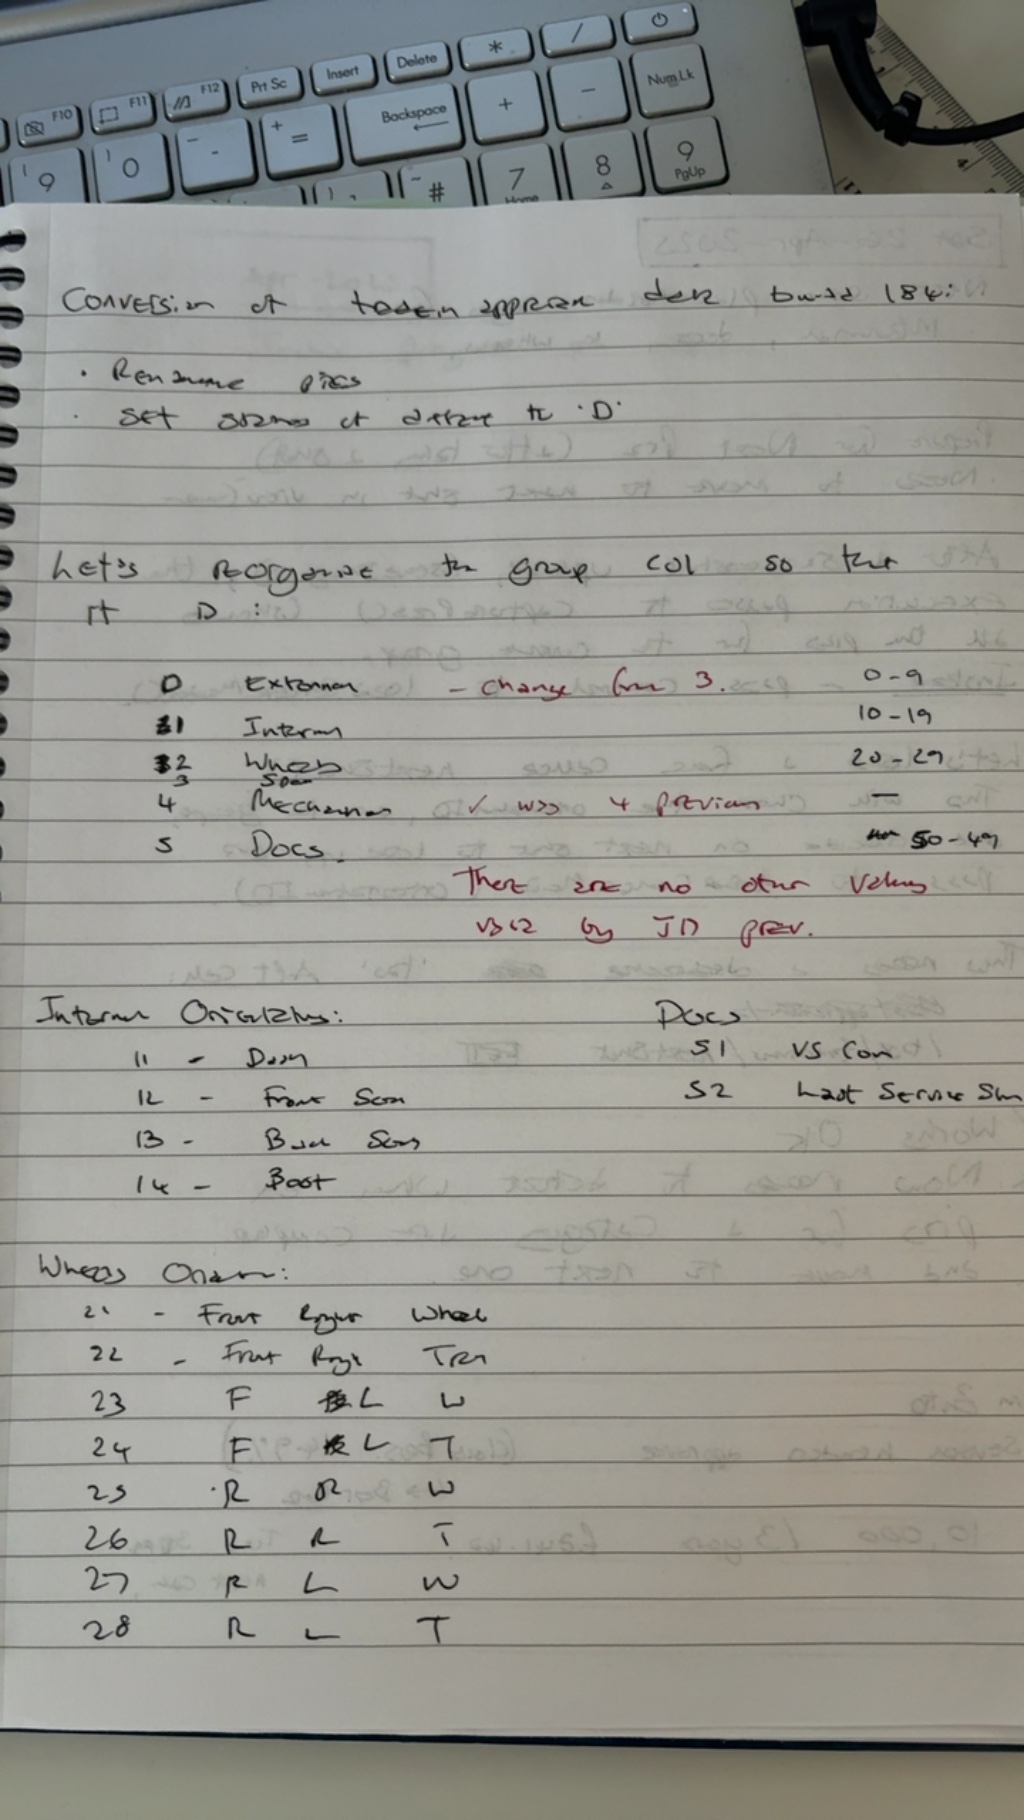 F10 F11 F12 Prt Sc Insert Delete * /
9 0 - + = Backspace + - Num Lk
# 7 Home 8 9 PgUp
Conversion of build 184:
· Rename pics
· Set to 'D'
Let's reorganise the group col so that
it :
0 External - change from 3. 0-9
1 Internal 10-19
2 Wheels 20-29
3 Spare
4 Mechanical ✓ was 4 previous —
5 Docs. 50-49
There are no other values
used by JD prev.
Internal Orientations: Docs
11 - Dash 51 V5 Con
12 - Front Seats 52 Last Service Stm
13 - Back Seats
14 - Boot
Wheels Orien:
21 - Front Right Wheel
22 - Front Right
23 F L W
24 F L T
25 R R W
26 R R T
27 R L W
28 R L T